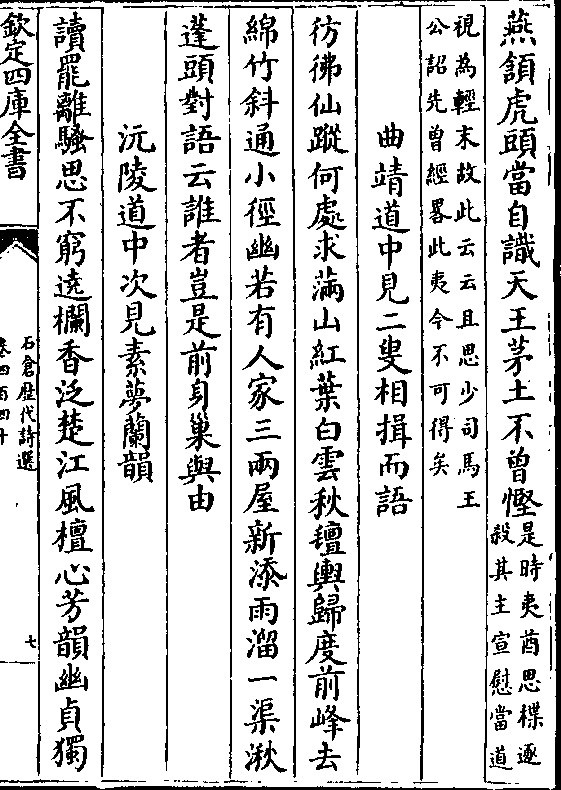 燕頷虎頭當自識天王茅土不曾慳是時夷酋思楪逐
殺其主宣慰當道
視為輕末故此云云且思少司馬王
公詔先曾經畧此夷今不可得矣
曲靖道中見二叟相揖而語
彷彿仙蹤何處求滿山紅葉白雲秋氊輿歸度前峰去
綿竹斜通小徑幽若有人家三兩屋新添雨溜一渠湫
蓬頭對語云誰者豈是前身巢與由
沅陵道中次見素夢蘭韻
讀罷離騷思不窮遶欄香泛楚江風檀心芳韻幽貞獨
欽定四庫全書
石倉歷代詩選
卷四百四十
七